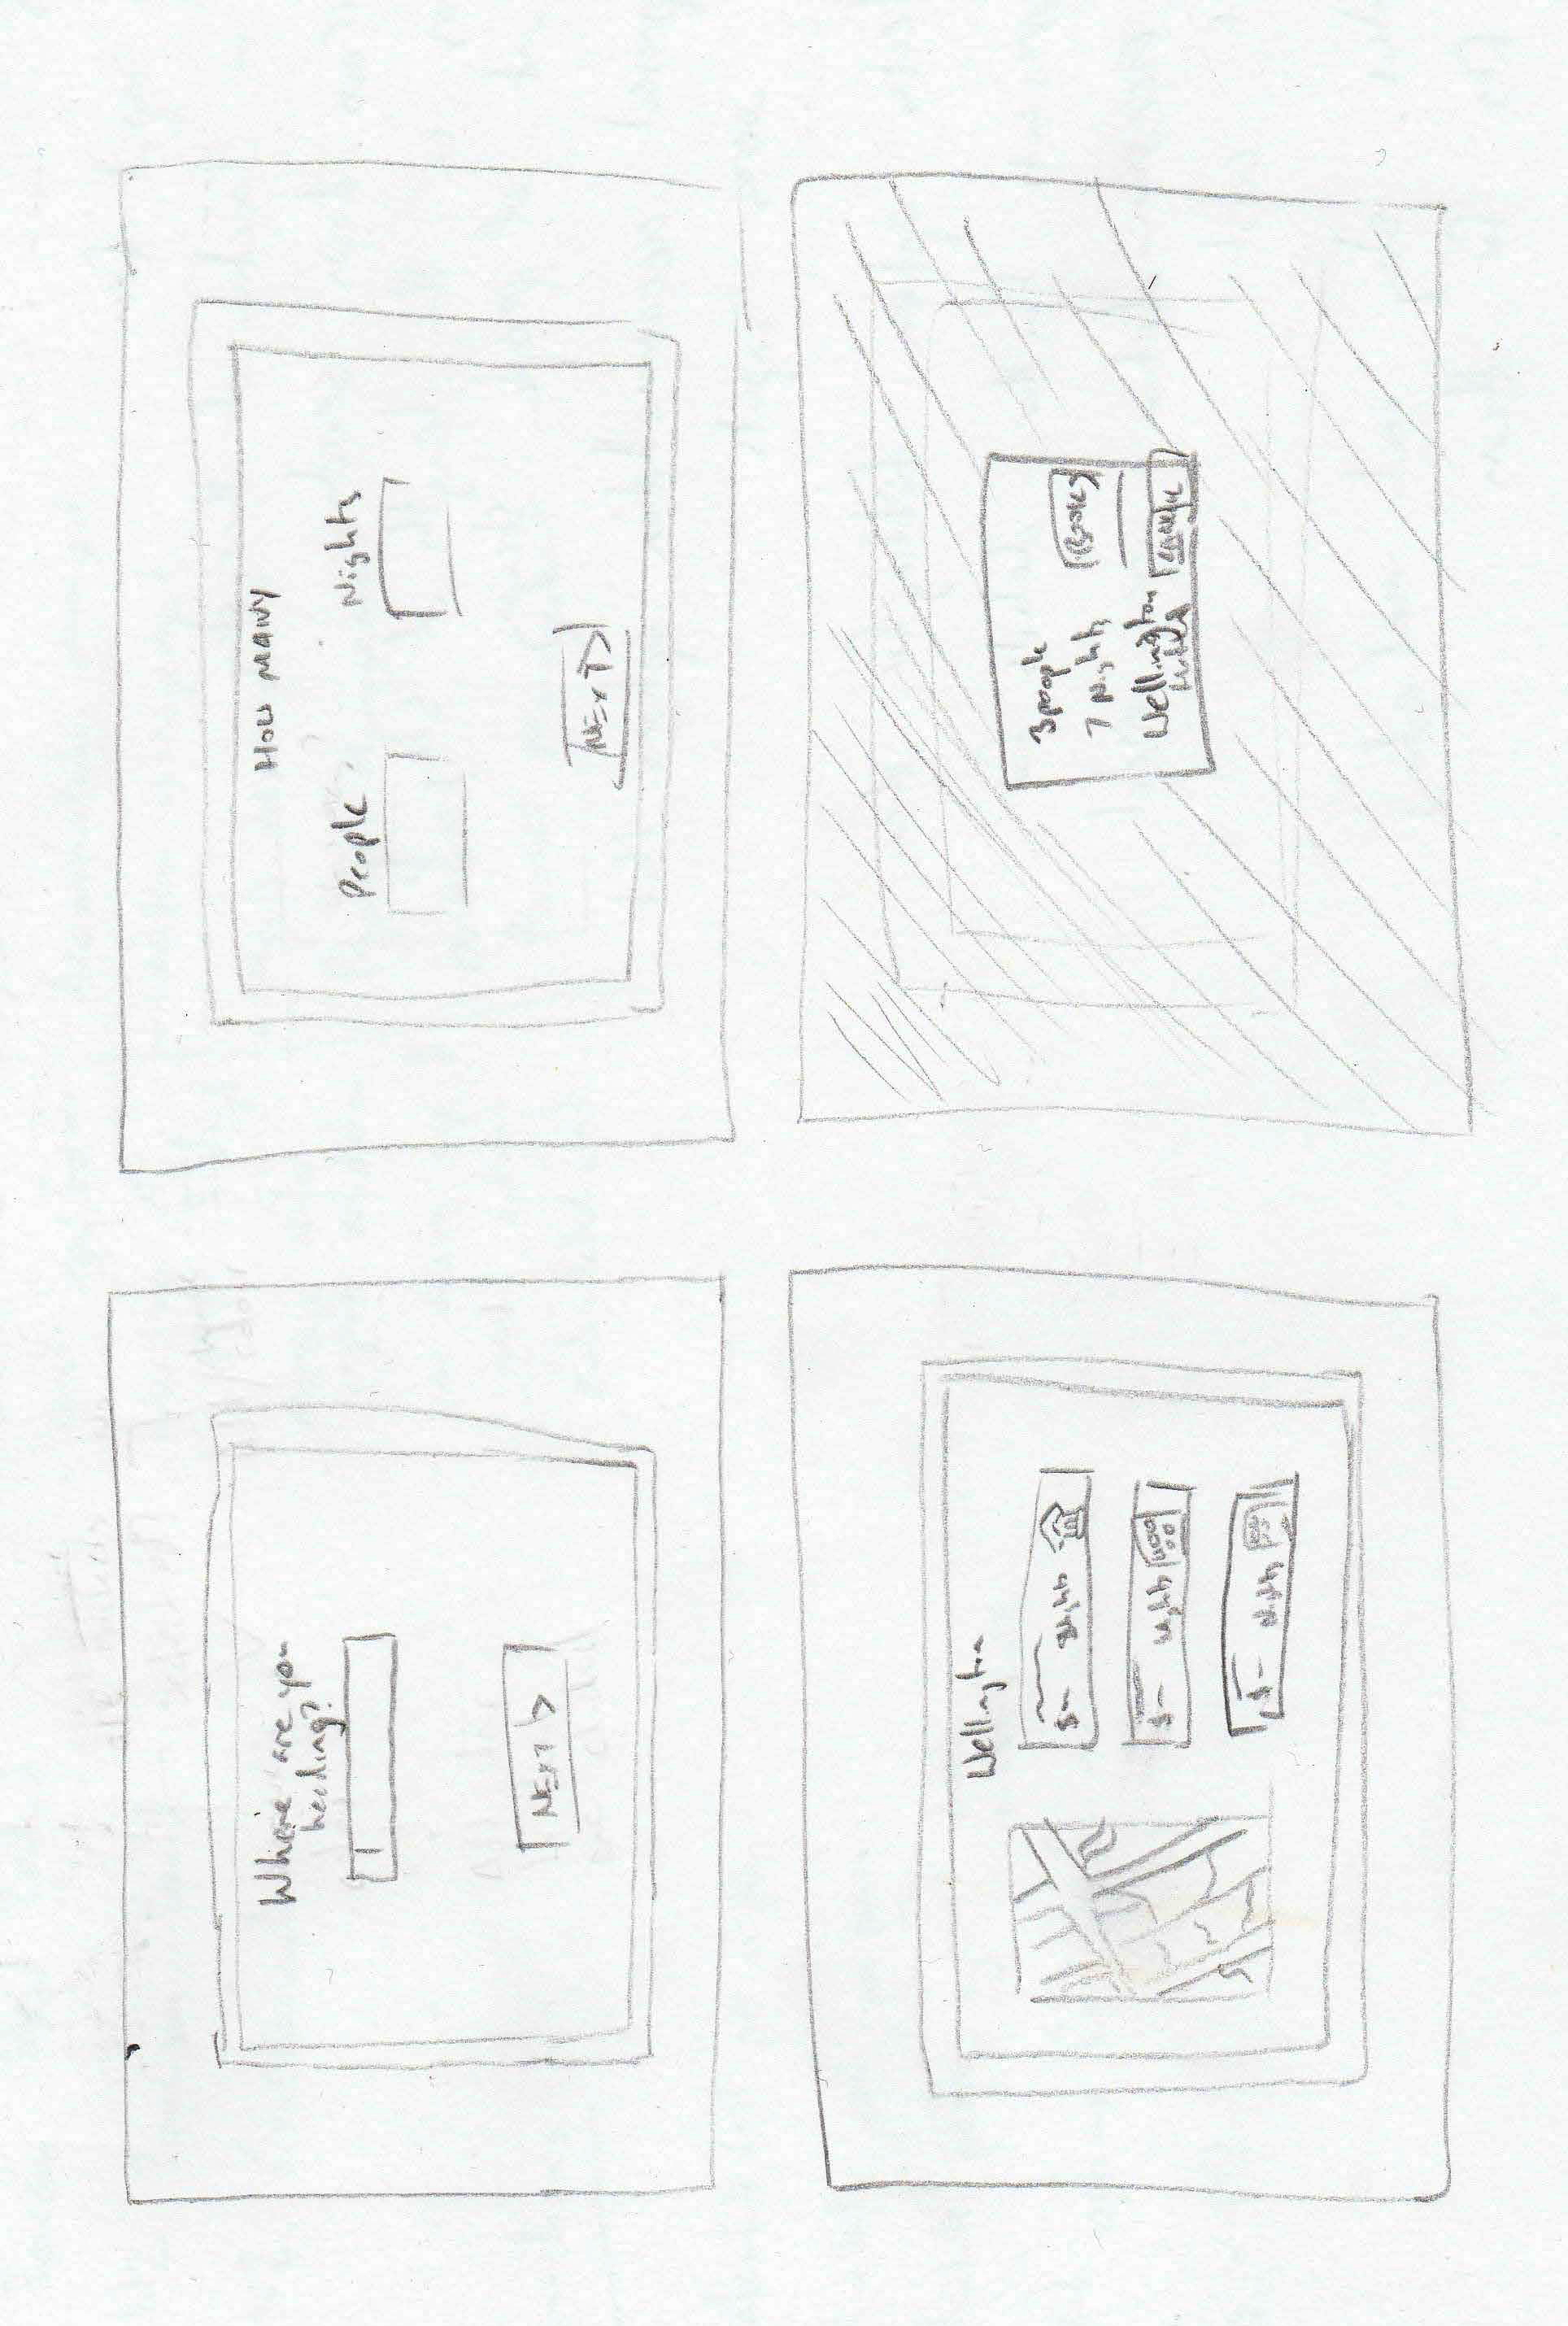 Where are you
heading?
NEXT >
HOW MANY
People
Nights
NEXT >
Wellington
$ - Nights
$ - Nights
$ - Nights
3 people
7 Nights
BOOK >
Wellington